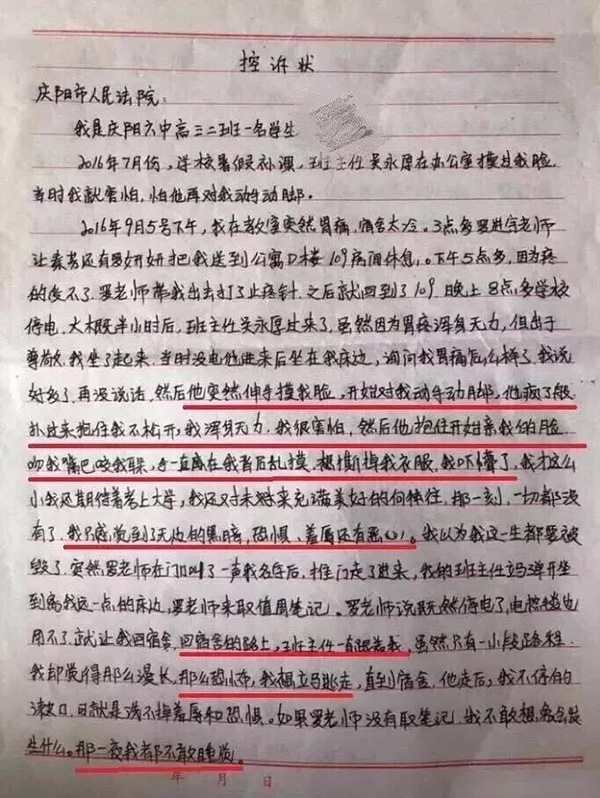 控诉状
庆阳市人民法院：
我是庆阳六中高三二班一名学生
2016年7月份，学校暑假补课，班主任吴永厚在办公室摸过我脸
当时我就害怕，怕他再对我动手动脚。
2016年9月5号下午，我在教室突然胃痛，宿舍太冷。3点多罗进宇老师
让秦芳还有罗妍妍把我送到公寓D楼109病房休息。下午5点多，因为疼
的受不了，罗老师带我出去打了止疼针。之后就回到了109。晚上8点多学校
停电，大概半小时后，班主任吴永厚过来了。虽然因为胃疼浑身无力，但出于
尊敬，我坐了起来，当时没电他进来后坐在我床边，询问我胃痛怎么样了，我说
好多了，再没说话，然后他突然伸手摸我脸，开始对我动手动脚，他疯了般
扑过来抱住我不松开，我浑身无力，我很害怕，然后他抱住开始亲我的脸
吻我嘴巴咬我耳朵，手一直在我背后乱摸，想撕掉我衣服，我吓懵了，我才这么
小我还期待着考上大学，我还对未来充满美好的向往，那一刻，一切都没
有了，我只感觉到了无边的黑暗，恐惧、羞辱还有恶心。我以为我这一生都要被
毁了，突然罗老师在门口叫了一声我名字后，推门走了进来，我的班主任立马弹开坐
到离我远一点的床边，罗老师来取值周笔记。罗老师说既然停电了，电热毯也
用不了，就让我回宿舍，回宿舍的路上，班主任一直跟着我，虽然只有一小段路程
我却觉得那么漫长，那么恐怖，我想立马逃走，直到宿舍，他走后，我不停的
漱口，可就是洗不掉羞辱和恐惧。如果罗老师没有取笔记，我不敢想，我会发
生什么。那一夜我都不敢睡觉。
年 月 日